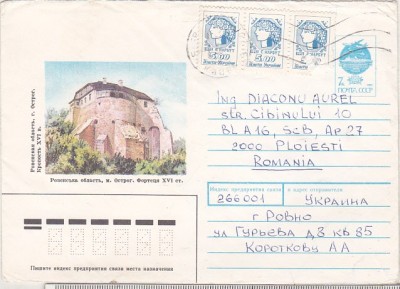 5.00
Пошта України
5.00
Пошта України
5.00
Пошта України
7
ПОЧТА СССР
Ing DIACONU AUREL
str. Cibinului 10
BL A 16, Sc B, Ap 27
2000 PLOIESTI
ROMANIA
Ровенская область, г. Острог.
Крепость XVI в.
Ровенська область, м. Острог. Фортеця XVI ст.
Индекс предприятия связи и адрес отправителя
266001 УКРАИНА
г Ровно
ул Гурьева д 3 кв 85
Короткову АА
Пишите индекс предприятия связи места назначения